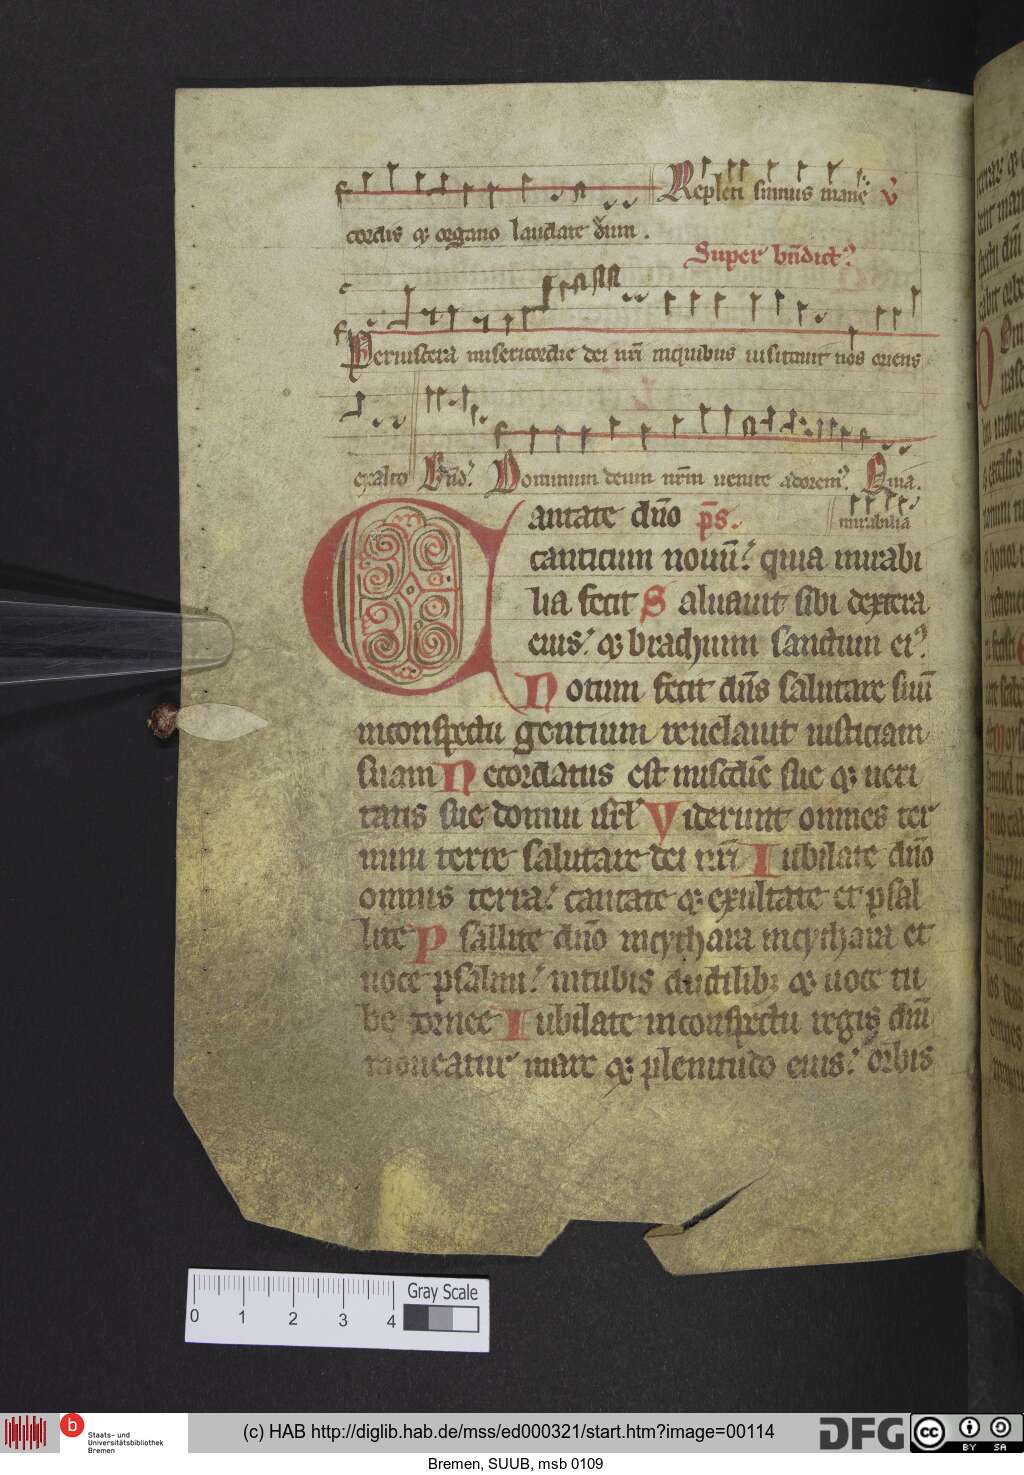 Repleti sumus mane v̉
cordis ꝫ organo laudate dūm .
Super bn̄dict᷒
Per viscera misericordie dei nr̄i inquibus visitauit nos oriens
exalto Bn̄d᷒. Dominum deum nr̄m uenite adorem᷒. Quia.
mirabilia
Cantate dn̄o p̄s.
canticum nouū᷒ quia mirabi
lia fecit Saluauit sibi dextera
eius᷒ ꝫ brachium sanctum ei᷒
Notum fecit dn̄s salutare suū
inconspectu gentium reuelauit iusticiam
suam Recordatus est miscdīe sue ꝫ ueri
tatis sue domui isrl̄ Viderunt omnes ter
mini terre salutare dei nr̄i Iubilate dn̄o
omnis terra᷒ cantate ꝫ exultate et psal
lite Psallite dn̄o incythara incythara et
uoce psalmi᷒ intubis ductilibꝫ ꝫ uoce tu
be cornee Iubilate inconspectu regis dn̄i
moueatur mare ꝫ plenitudo eius᷒ orbis
0 1 2 3 4 Gray Scale
b Staats- und
Universitätsbibliothek
Bremen
(c) HAB http://diglib.hab.de/mss/ed000321/start.htm?image=00114
DFG cc BY SA
Bremen, SUUB, msb 0109